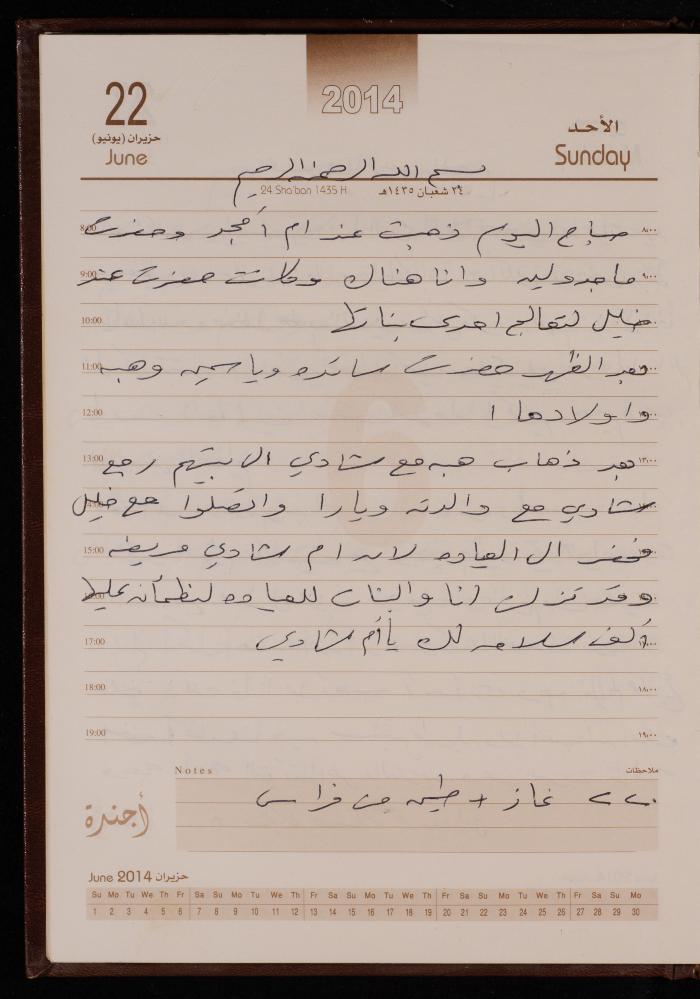 2014
22
حزيران (يونيو)
June
الأحد
Sunday
بسم الله الرحمن الرحيم
24 Sha'ban 1435 H
٢٤ شعبان ١٤٣٥هـ
8:00 صباح اليوم ذهبت عند ام أمجد وحضرت ٨:٠٠
9:00 ماجدولين وانا هناك وكانت حضرت عند ٩:٠٠
10:00 خليل لتعالج احدى بناتها
11:00 بعد الظهر حضرت سائده وياسمين وهبه
12:00 واولادها
13:00 بعد ذهاب هبه مع شادي الى بيتهم رجع ١٣:٠٠
شادي مع والدته ويارا واتصلوا مع خليل
15:00 فحضر الى العياده لان ام شادي مريضه
وقد نزلت انا والبنات للعياده لنطمأن عليها
17:00 ألف سلامه لك يا أم شادي
18:00 ١٨:٠٠
19:00 ١٩:٠٠
Notes ملاحظات
٢٢٠ غاز + من فراس
أجندة
June 2014 حزيران
Su Mo Tu We Th Fr Sa Su Mo Tu We Th Fr Sa Su Mo Tu We Th Fr Sa Su Mo Tu We Th Fr Sa Su Mo
1 2 3 4 5 6 7 8 9 10 11 12 13 14 15 16 17 18 19 20 21 22 23 24 25 26 27 28 29 30